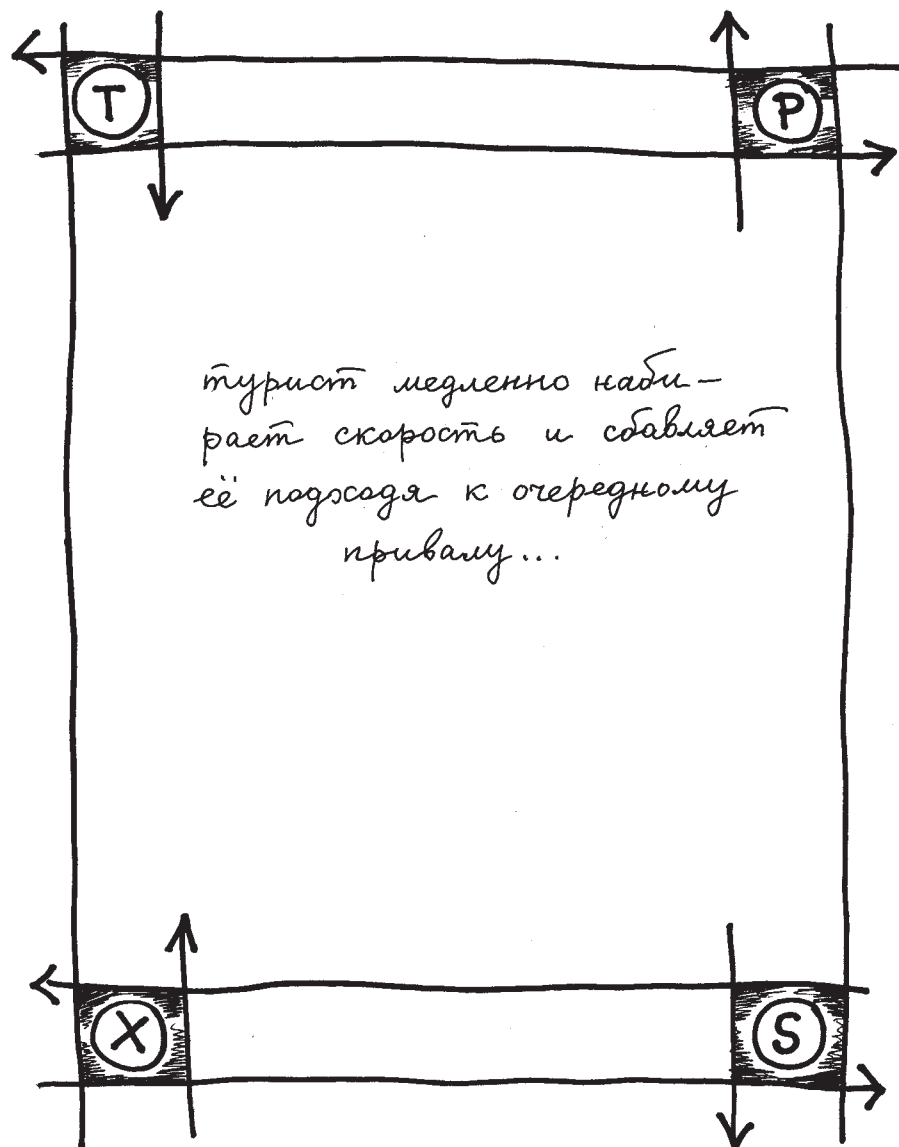 T
P
турист медленно наби–
рает скорость и сбавляет
её подходя к очередному
привалу...
X
S